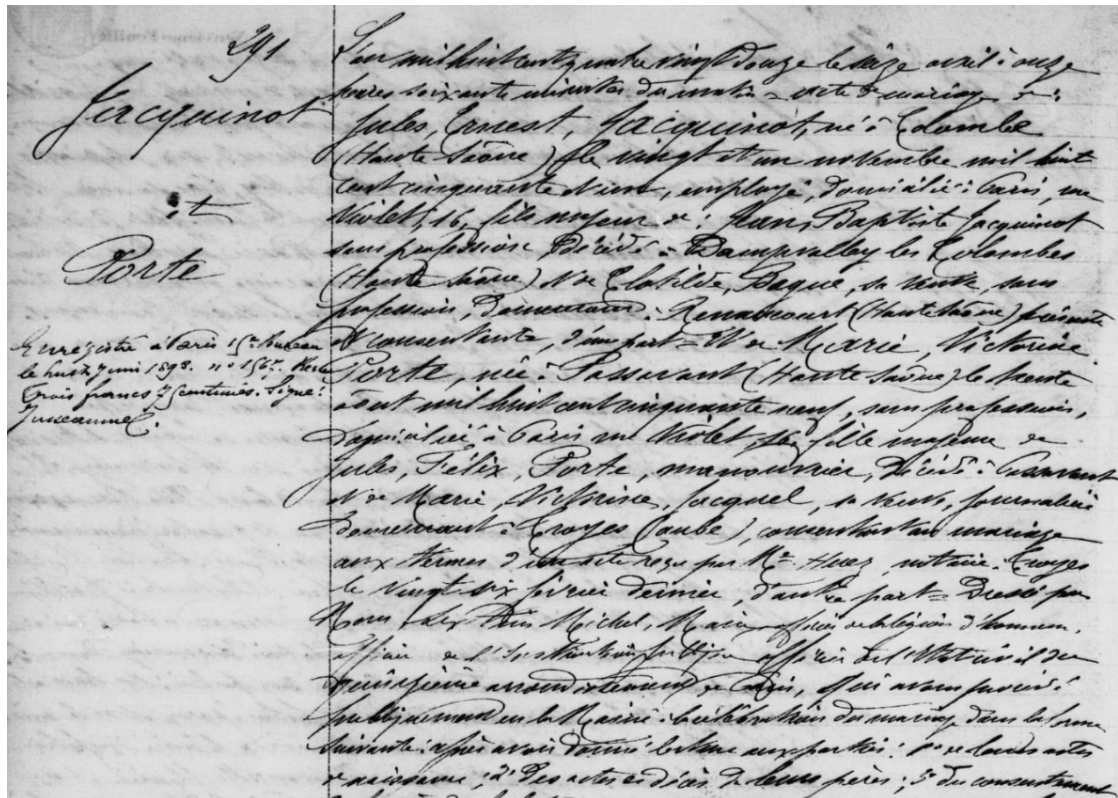 291
Jacquinot
et
Porte
Enregistré à Paris 15e Bureau
le huit juin 1898. no 1567. Reçu
trois francs 75 centimes. Signé:
L'an mil huit cent quatre vingt douze le seize avril à onze
heures soixante minutes du matin acte de mariage de:
Jules, Ernest, Jacquinot, né à Colombe
(Haute Saône) le vingt et un novembre mil huit
cent cinquante neuf, employé, domicilié à Paris, rue
Violet, 16, fils majeur de: Jean, Baptiste Jacquinot
sans profession, Décédé à Dampvalley les Colombes
(Haute Saône) et de Clotilde, Bague, sa veuve, sans
profession, Demeurant à Renaucourt (Haute Saône) présente
et consentante, d'une part = et de Marie, Victorine
Porte, née à Passavant (Haute Saône) le trente
août mil huit cent cinquante neuf, sans profession,
domiciliée à Paris rue Violet, 16, fille majeure de
Jules, Félix, Porte, manouvrier, Décédé à Passavant
et de Marie, Victorine, Jacquel, sa veuve, journalière
demeurant à Troyes (aube), consentant au mariage
aux termes d'un acte reçu par Me Huez, notaire à Troyes
le vingt six février dernier, d'autre part = Dressé par
Nous Michel, Maire officier de la légion d'honneur,
officier de l'Instruction publique officier de l'Etat civil du
quinzième arrondissement de Paris, qui avons procédé
publiquement en la Mairie à la célébration du mariage dans la forme
suivante: après avoir donné lecture aux parties: 1o de leurs actes
de naissance; 2o des actes de décès de leurs pères; 3o du consentement